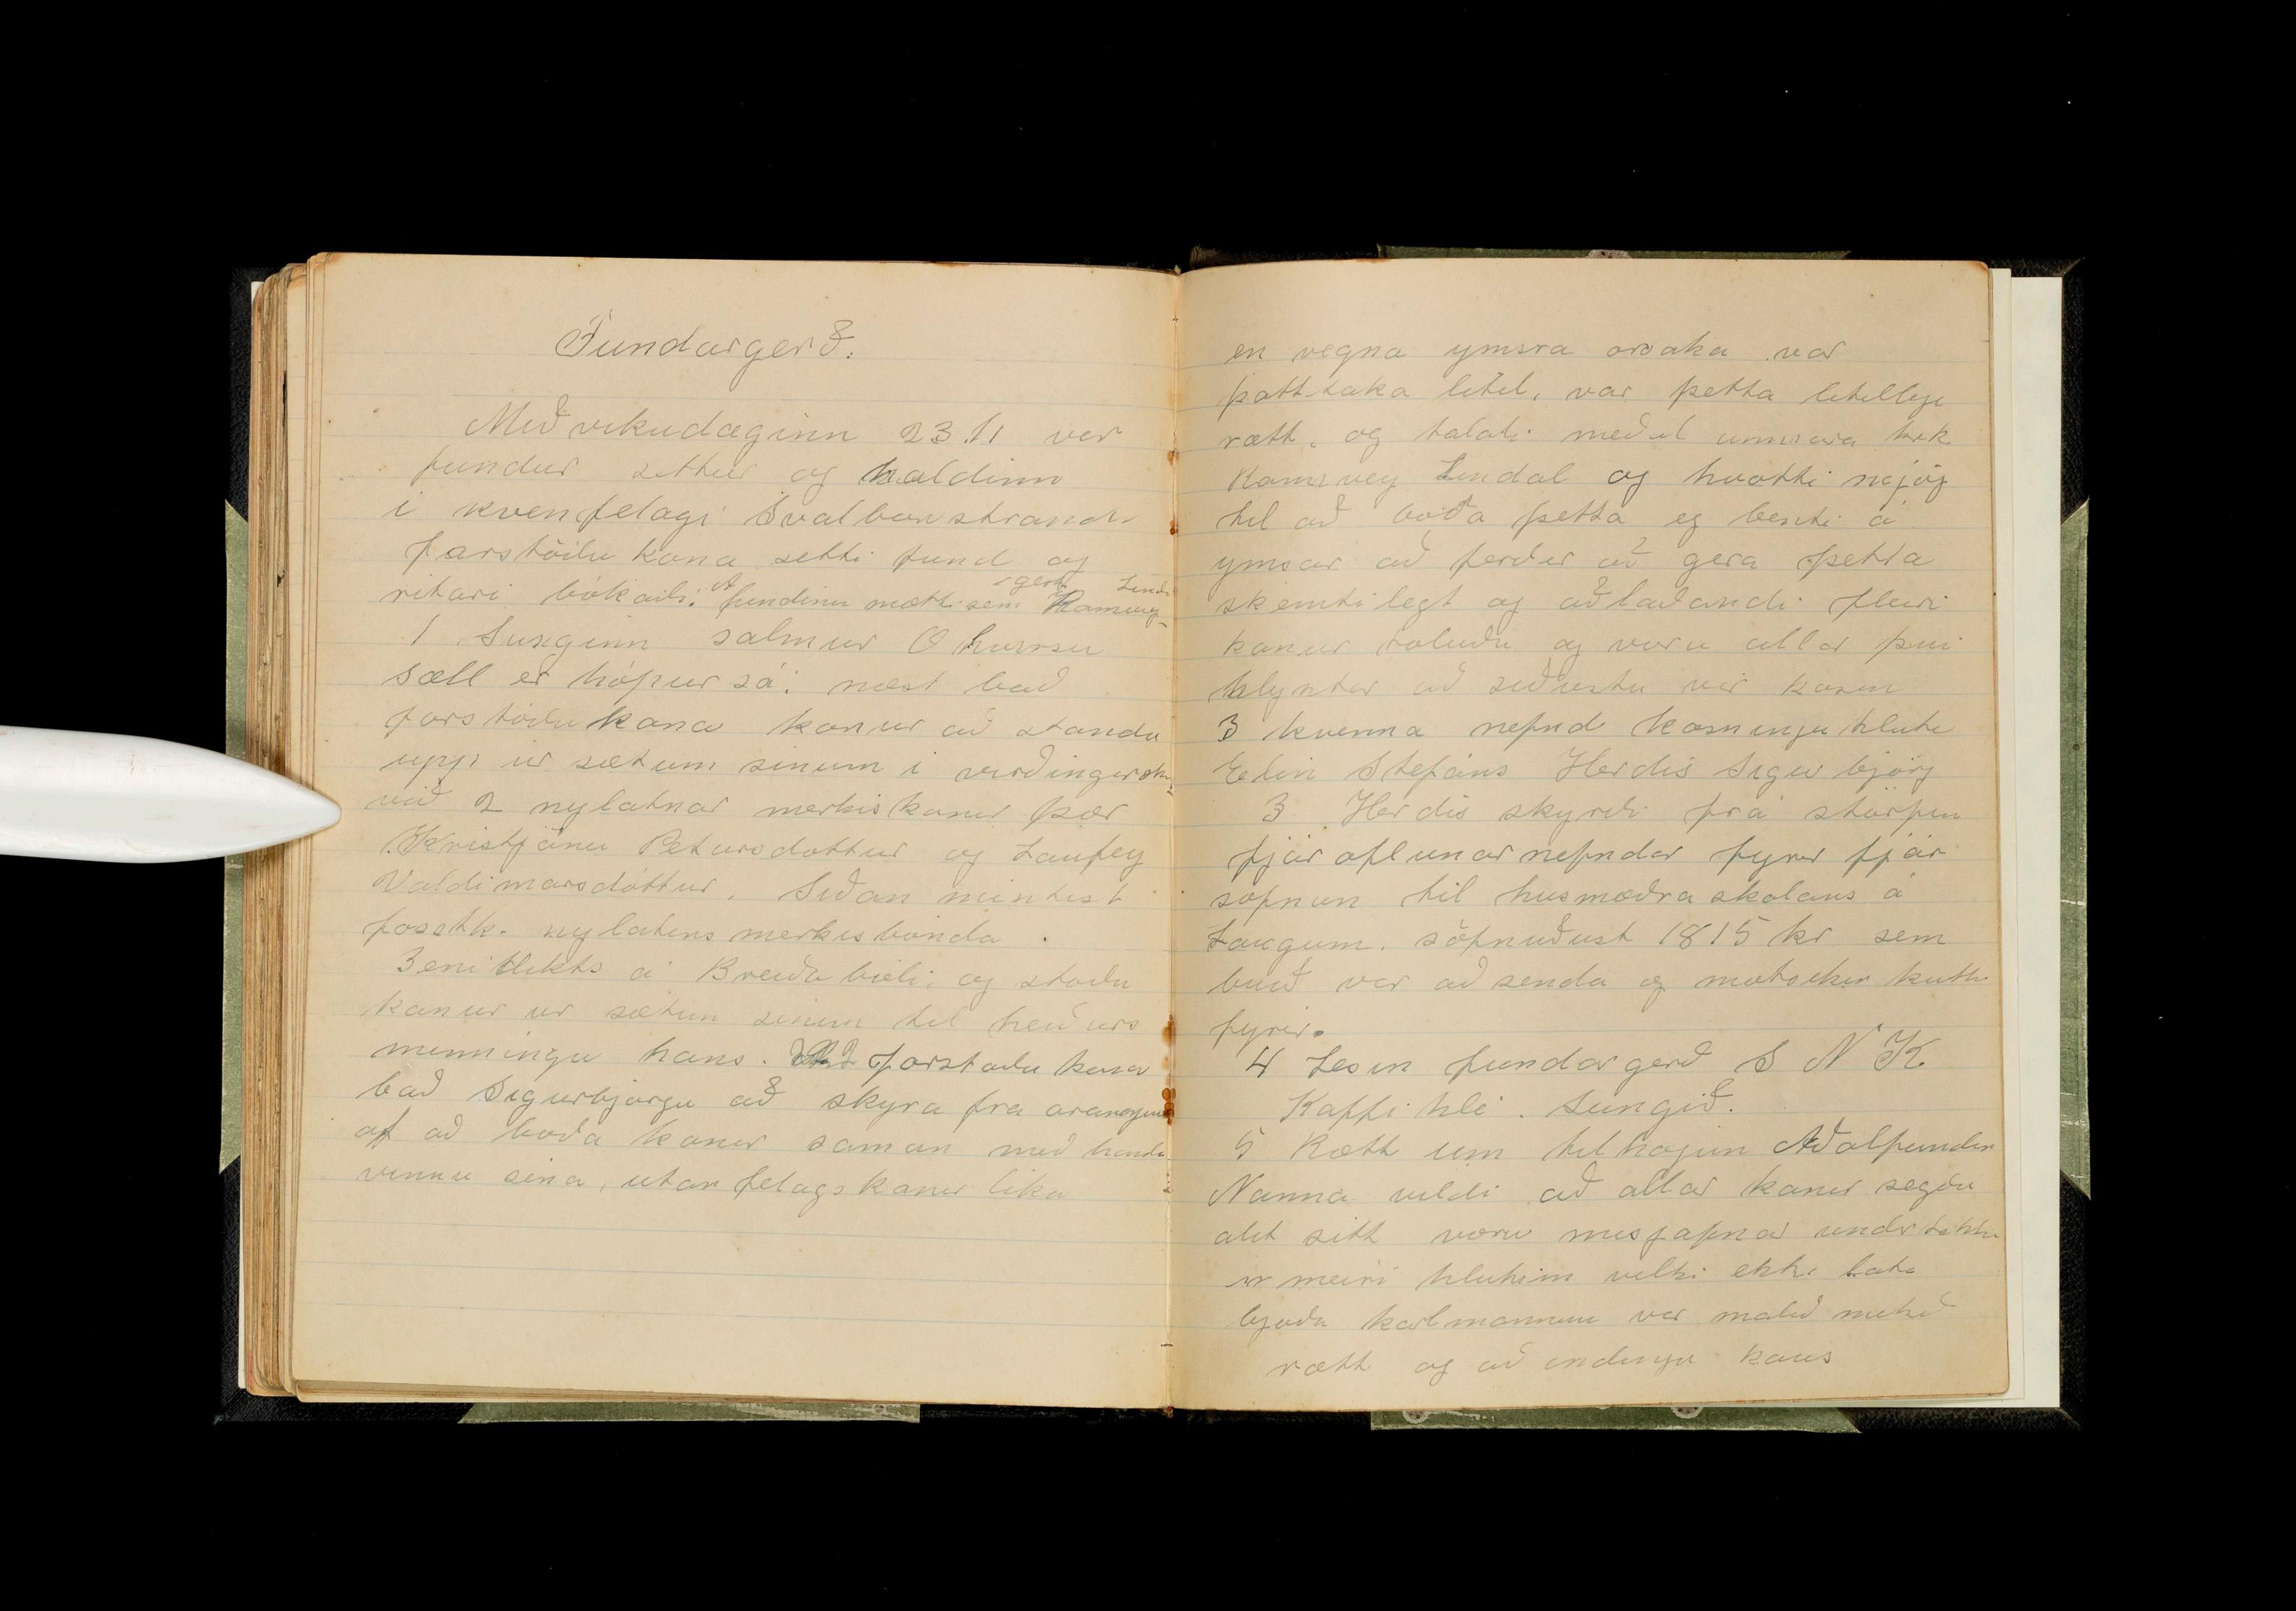 Fundargerð.
Miðvikudaginn 23.11 var
fundur settur og haldinn
i kvenfelagi Svalbarstrandr
forstöðu kona setti fund og
ritari bókaði. A fundinn mætti sem gestr Rannveig Lindal
1 Sunginn salmur O hversu
sæll er hópur sá: næst bað
forstöðukona konur að standa
upp úr sætum sinum i virðingarskn
við 2 nylatnar merkiskonur þær
Kristjönu Petursdottur og Laufey
Valdimarsdóttur. Siðan mintist
fostk. nylatins merkisbónda
Benidikts á Breiðabóli, og stóðu
konur ur sætum sinum til heiðurs
minningu hans. 2 forstoðu kona
bað Sigurbjorgu að skyra fra arangrinum
af að boða konur saman með handa
vinnu sina, utanfelagskonur lika
en vegna ymsra orsaka var
þátttaka litil, var þetta litillega
rætt, og talaði meðal annara
Rannveig Lindal og hvatti mjög
til að boða þetta og benti á
ymsar að ferðir að gera þetta
skemtilegt og aðlaðandi fleiri
konur toluðu og voru allar þvi
hlyntar að siðustu var kosin
3 kvenna nefnd kosningu hlutu
Elin Stefáns Herdis Sigurbjörg
3 Herdis skyrði frá störfum
fjáröflunarnefndar fyrir fjár
söfnun til husmæðraskolans á
Laugum. söfnuðust 1815 kr sem
buið var að senda og
fyrir.
4 Lesin fundargerð S N K
Kaffi hlé. Sungið.
5 Rætt um tilhögun Aðalfundar
Nanna vildi að allar konur segðu
alit sitt voru misjafnar undirtektir
meiri hlutinn vildi ekki lata
bjoða karlmonnum var malið mikið
rætt og að endingu kaus